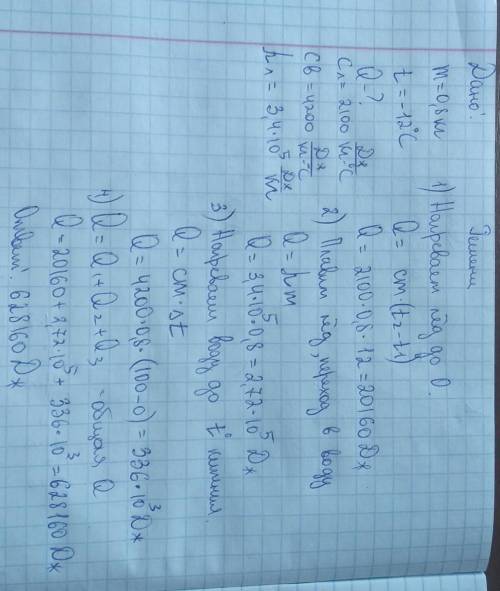 Дано:
m=0,8 кг
t=-12°C
Q-?
Cл=2100 Дж/кг·°C
Cв=4200 Дж/кг·°C
λл=3,4·10⁵ Дж/кг
Решение
1) Нагревает лёд до 0
Q= cm·(t₂-t₁)
Q= 2100·0,8·12=20160 Дж
2) Плавим лёд, переход в воду
Q=λm
Q=3,4·10⁵·0,8=2,72·10⁵ Дж
3) Нагреваем воду до t° кипения.
Q=cm·Δt
Q=4200·0,8·(100-0)=336·10³ Дж
4) Q=Q₁+Q₂+Q₃ -общая Q
Q=20160+2,72·10⁵+336·10³=628160 Дж
Ответ: 628160 Дж